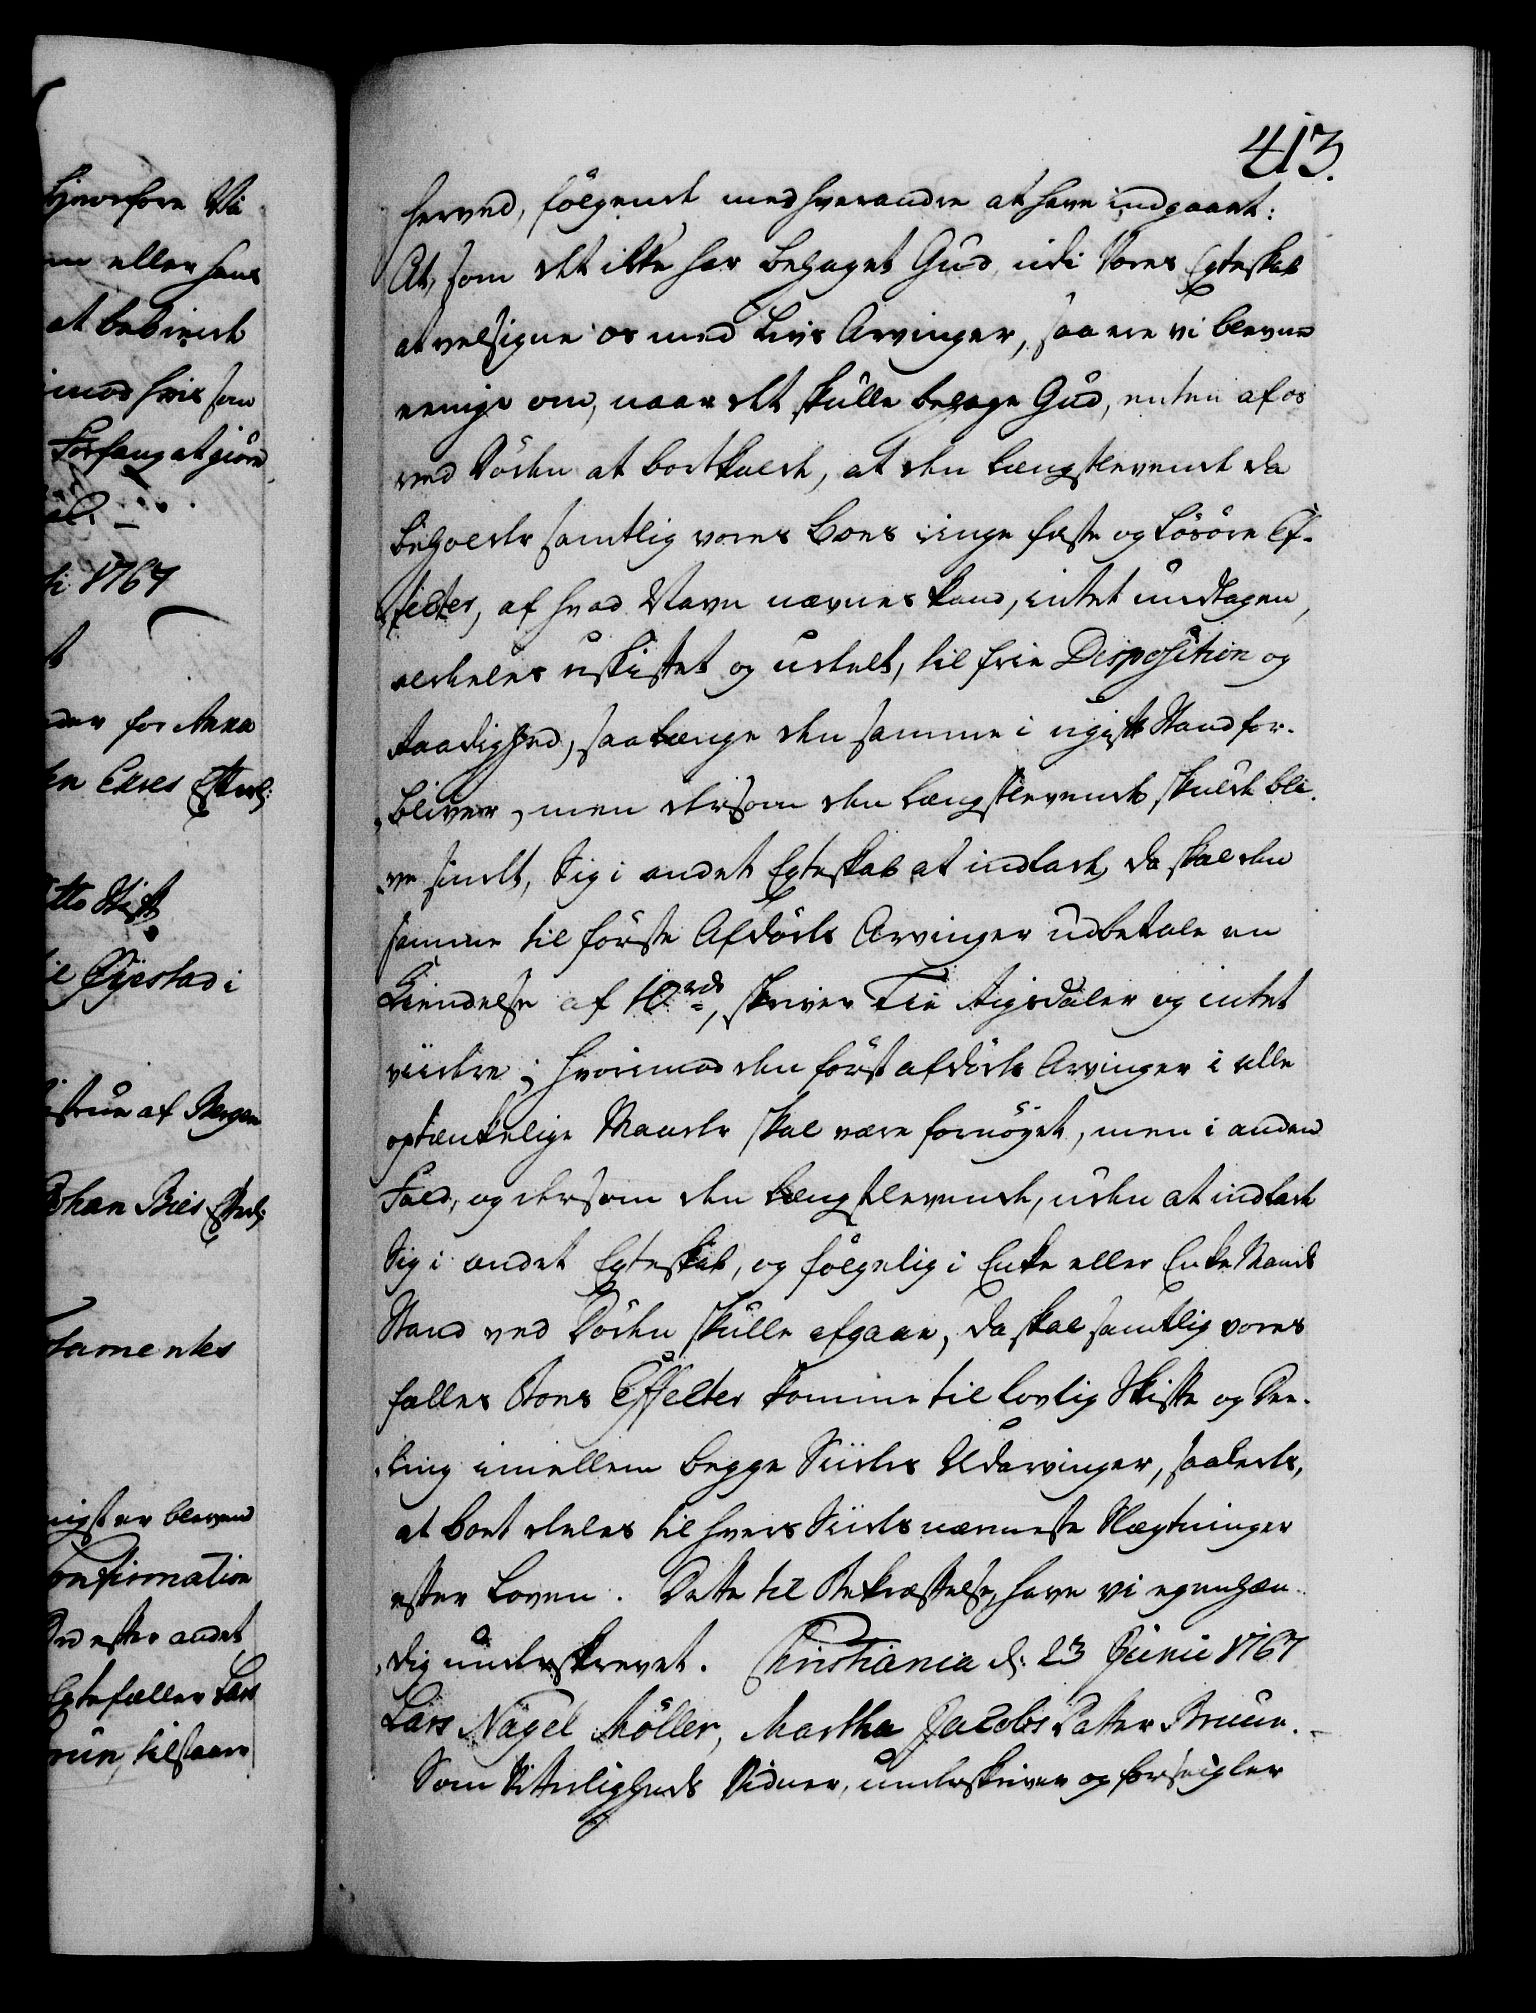 413.
herved, følgende med hverandre at have indgaaet:
At, som det ikke har behaget Gud, udi Vores Egteskab
at velsigne os med Livs Arvinger, saa ere vi blevne
eenige om, naar det skulle behage Gud, enten af os
ved Døden at bortkalde, at den Længstlevende da
beholder samtlig vores Boes ringe faste og Løsøre Ef-
fecter, af hvad Navn nævnes kand, intet undtagen,
aldeles uskiftet og udeelt, til frie Disposition og
Raadighed, saalænge den samme i ugift Stand for-
bliver, men dersom den Længstlevende skulde bli-
ve sindet, Sig i andet Egteskab at indlade, da skal den
samme til første Afdødes Arvinger udbetale en
Kiendelse af 10 rd, skriver Tie Rigsdaler og intet
viidere; hvorimod den først afdødes Arvinger i alle
optænkelige Maader skal være fornøyet, men i anden
Fald, og dersom den Længstlevende, uden at indlade
Sig i andet Egteskab, og følgelig i Enke eller Enke Mands
Stand ved Døden skulle afgaae, da skal samtlig vores
fælles Boes Effecter komme til lovlig Skifte og Dee-
ling imellem begge Siiders Udarvinger, saaledes,
at Boet deles til hvers Siides nærmeste Slægtninger
efter Loven. Dette til Bekræftelse, have vi egenhæn-
dig underskrevet. Christiania d: 23 Junii 1767
Lars Nagel Møller, Martha Jacobs Datter Bruun.
Som Vitterligheds Vidner, underskriver og forseigler
hvorfore Vi
eller hans
at bebinde
imod hvis som
Forfang at giøre
1767
for Anna
Stift
Øyestad i
af Bergen
nigst er bleven
Confirmation
Ord efter andet
Egtefæller Lars
tilstaae